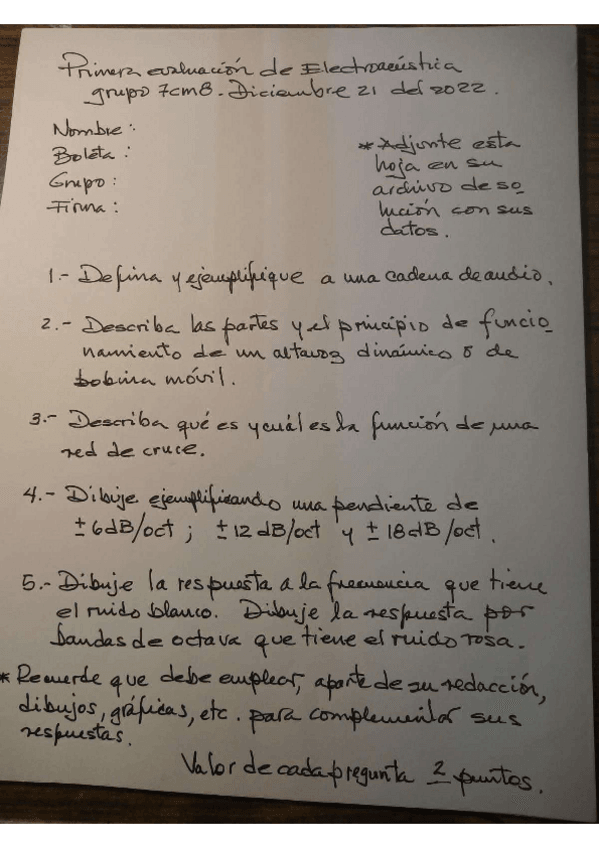 Primera evaluación de Electroacústica
grupo 7cm8. Diciembre 21 del 2022.
Nombre:
Boleta:
Grupo:
Firma:
* Adjunte esta
hoja en su
archivo de so
lución con sus
datos.
1.- Defina y ejemplifique a una cadena de audio.
2.- Describa las partes y el principio de funcio
namiento de un altavoz dinámico ó de
bobina móvil.
3.- Describa qué es y cuál es la función de una
red de cruce.
4.- Dibuje ejemplificando una pendiente de
± 6dB/oct ; ± 12 dB/oct y ± 18dB/oct.
5.- Dibuje la respuesta a la frecuencia que tiene
el ruido blanco. Dibuje la respuesta por
bandas de octava que tiene el ruido rosa.
* Recuerde que debe emplear, aparte de su redacción,
dibujos, gráficas, etc. para complementar sus
respuestas.
Valor de cada pregunta 2 puntos.